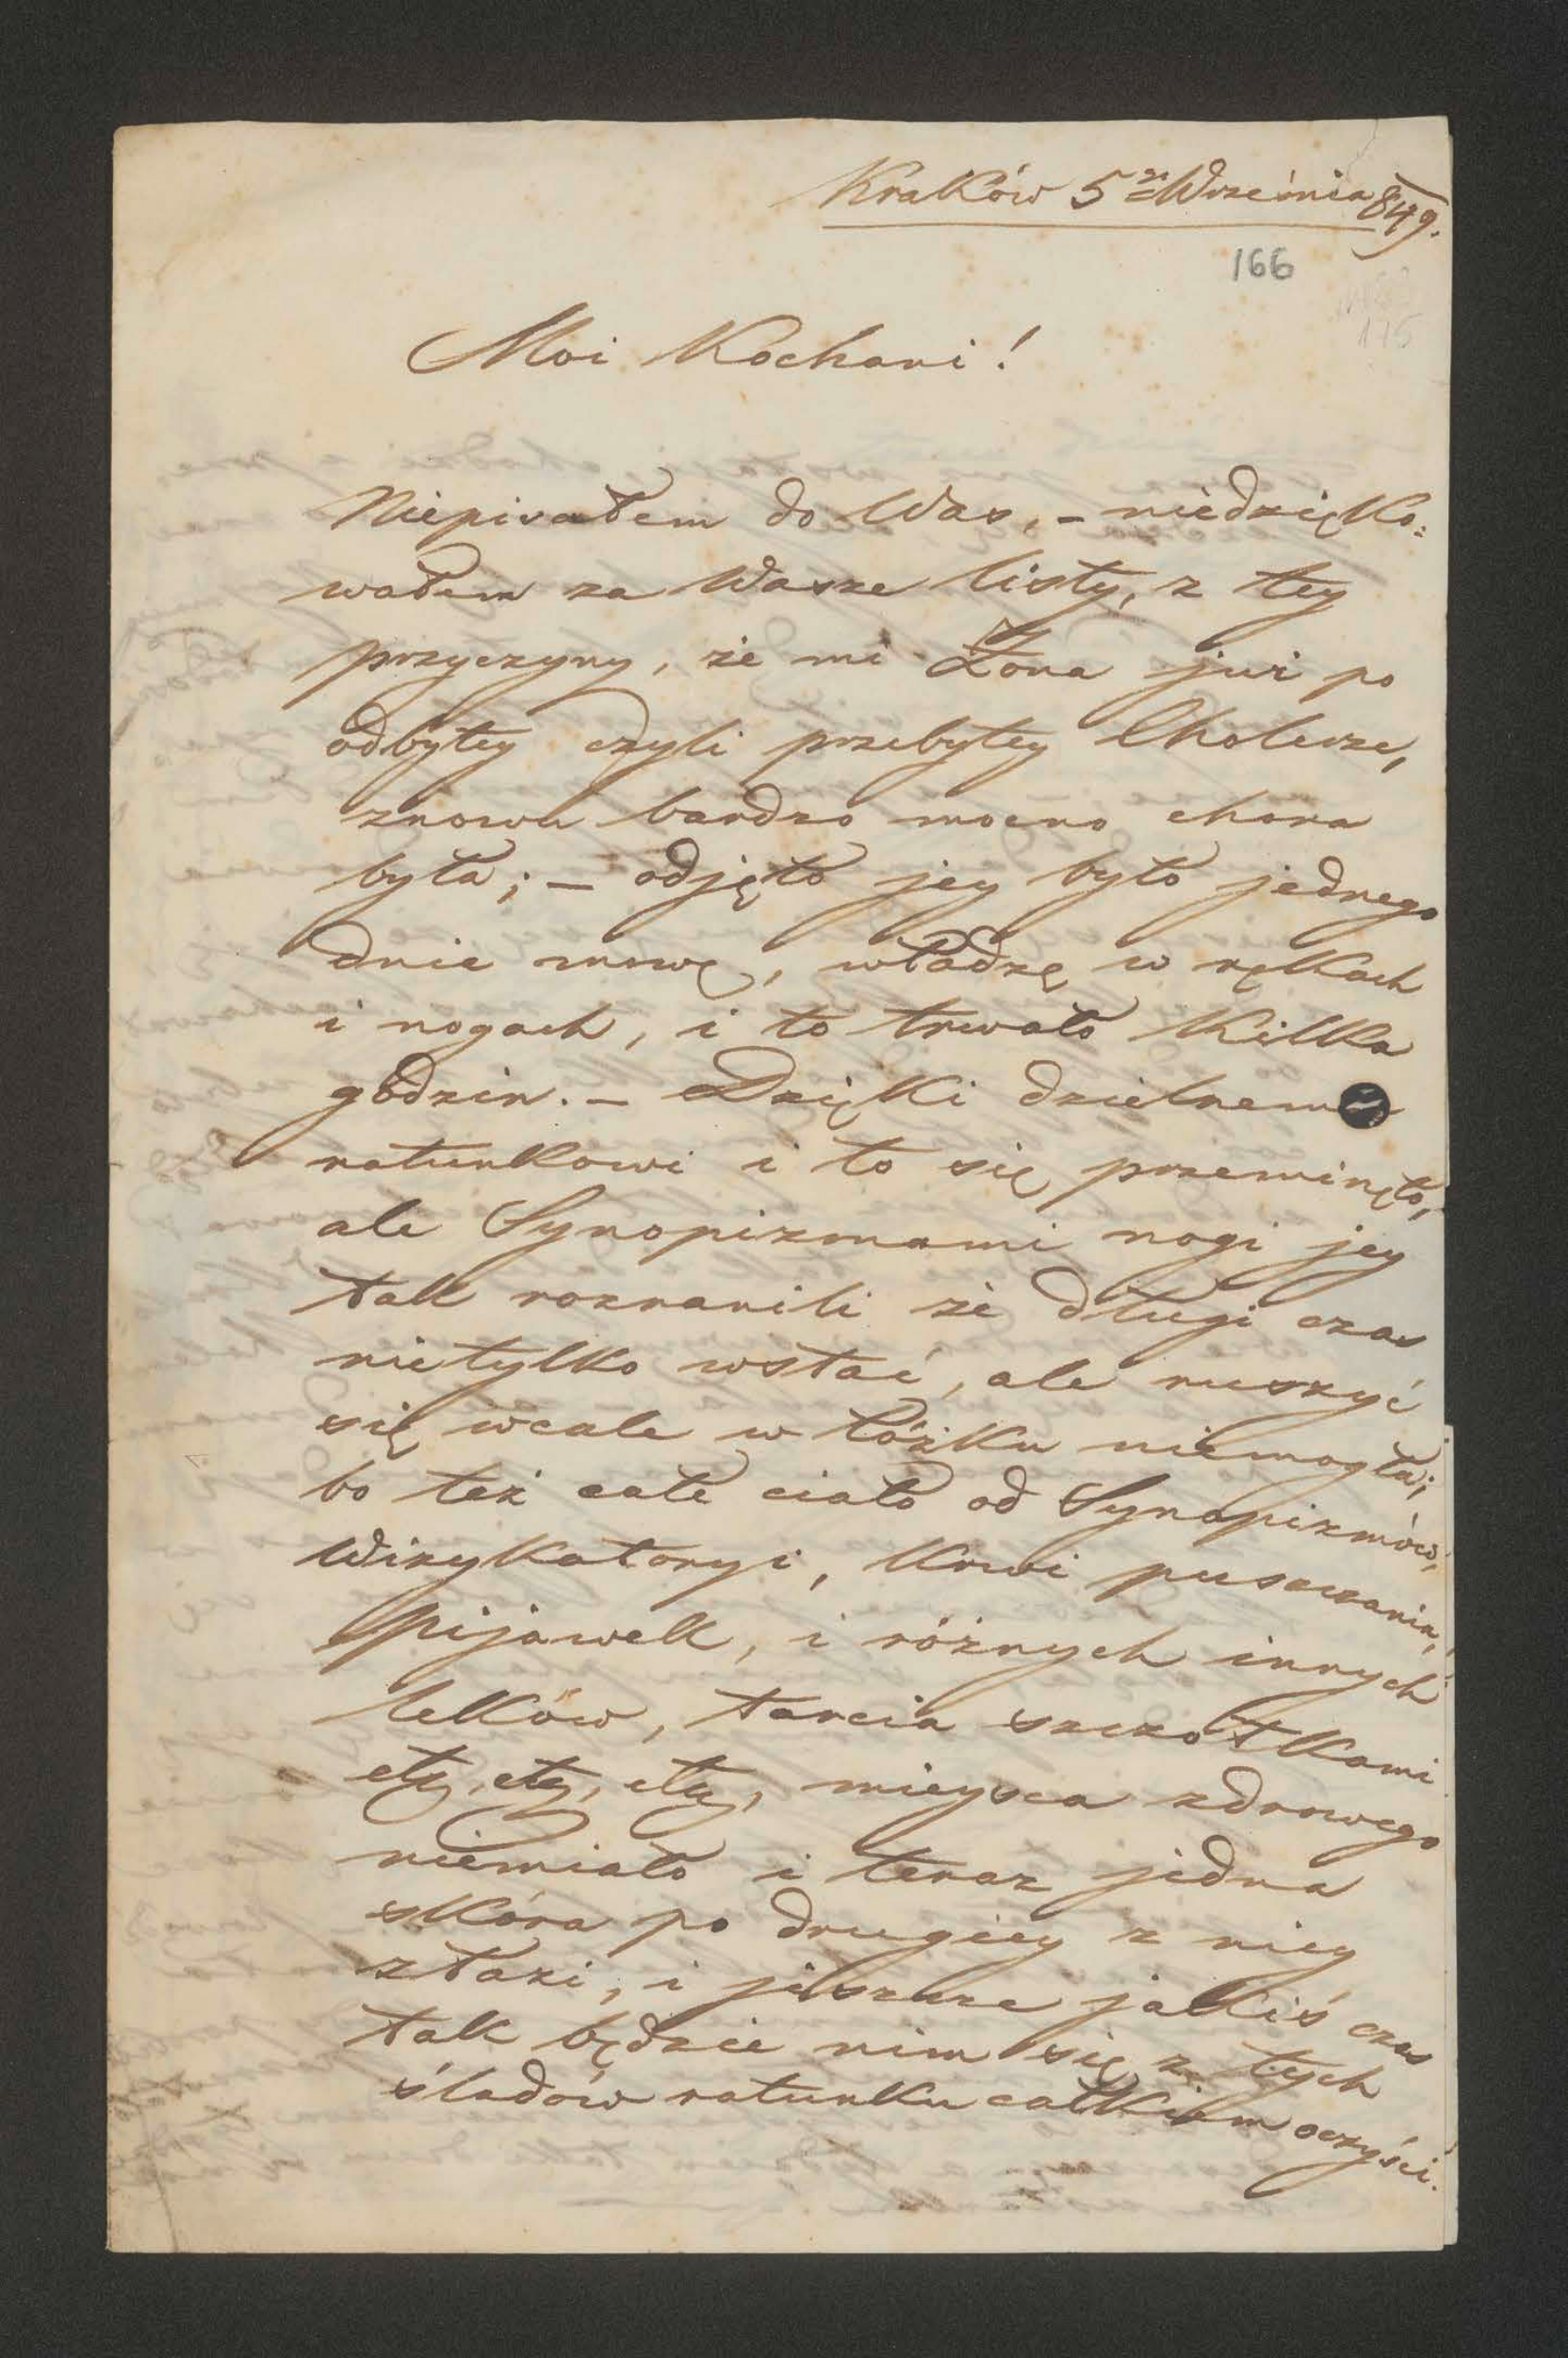 Kraków 5go Września 849.
166
175
Moi Kochani!
Niepisałem do Was, – niedzięko:
wałem za Wasze listy, z tey
przyczyny, że mi Żona już po
odbytey czyli przebytey Cholerze,
znowu bardzo mocno chora
była; – odjęło jey było jednego
dnia mowę, władzę w rękach
i nogach, i to trwało kilka
godzin. – Dzięki dzielnemu
ratunkowi i to się przeminęło,
ale Synopizmami nogi jey
tak rozranili że długi czas
nietylko wstać, ale ruszyć
się wcale w łóżku niemogła;
bo też całe ciało od Synapizmów,
Wizykatoryi, Krwi puszczania,
pijawek, i różnych innych
leków, tarcia szczotkami
etc, etc, etc, mieysca zdrowego
niemiało i teraz jedna
skóra po drugiey z niey
złazi, i jeszcze jakiś czas
tak będzie nim się z tych
śladów ratunku całkiem oczyści.